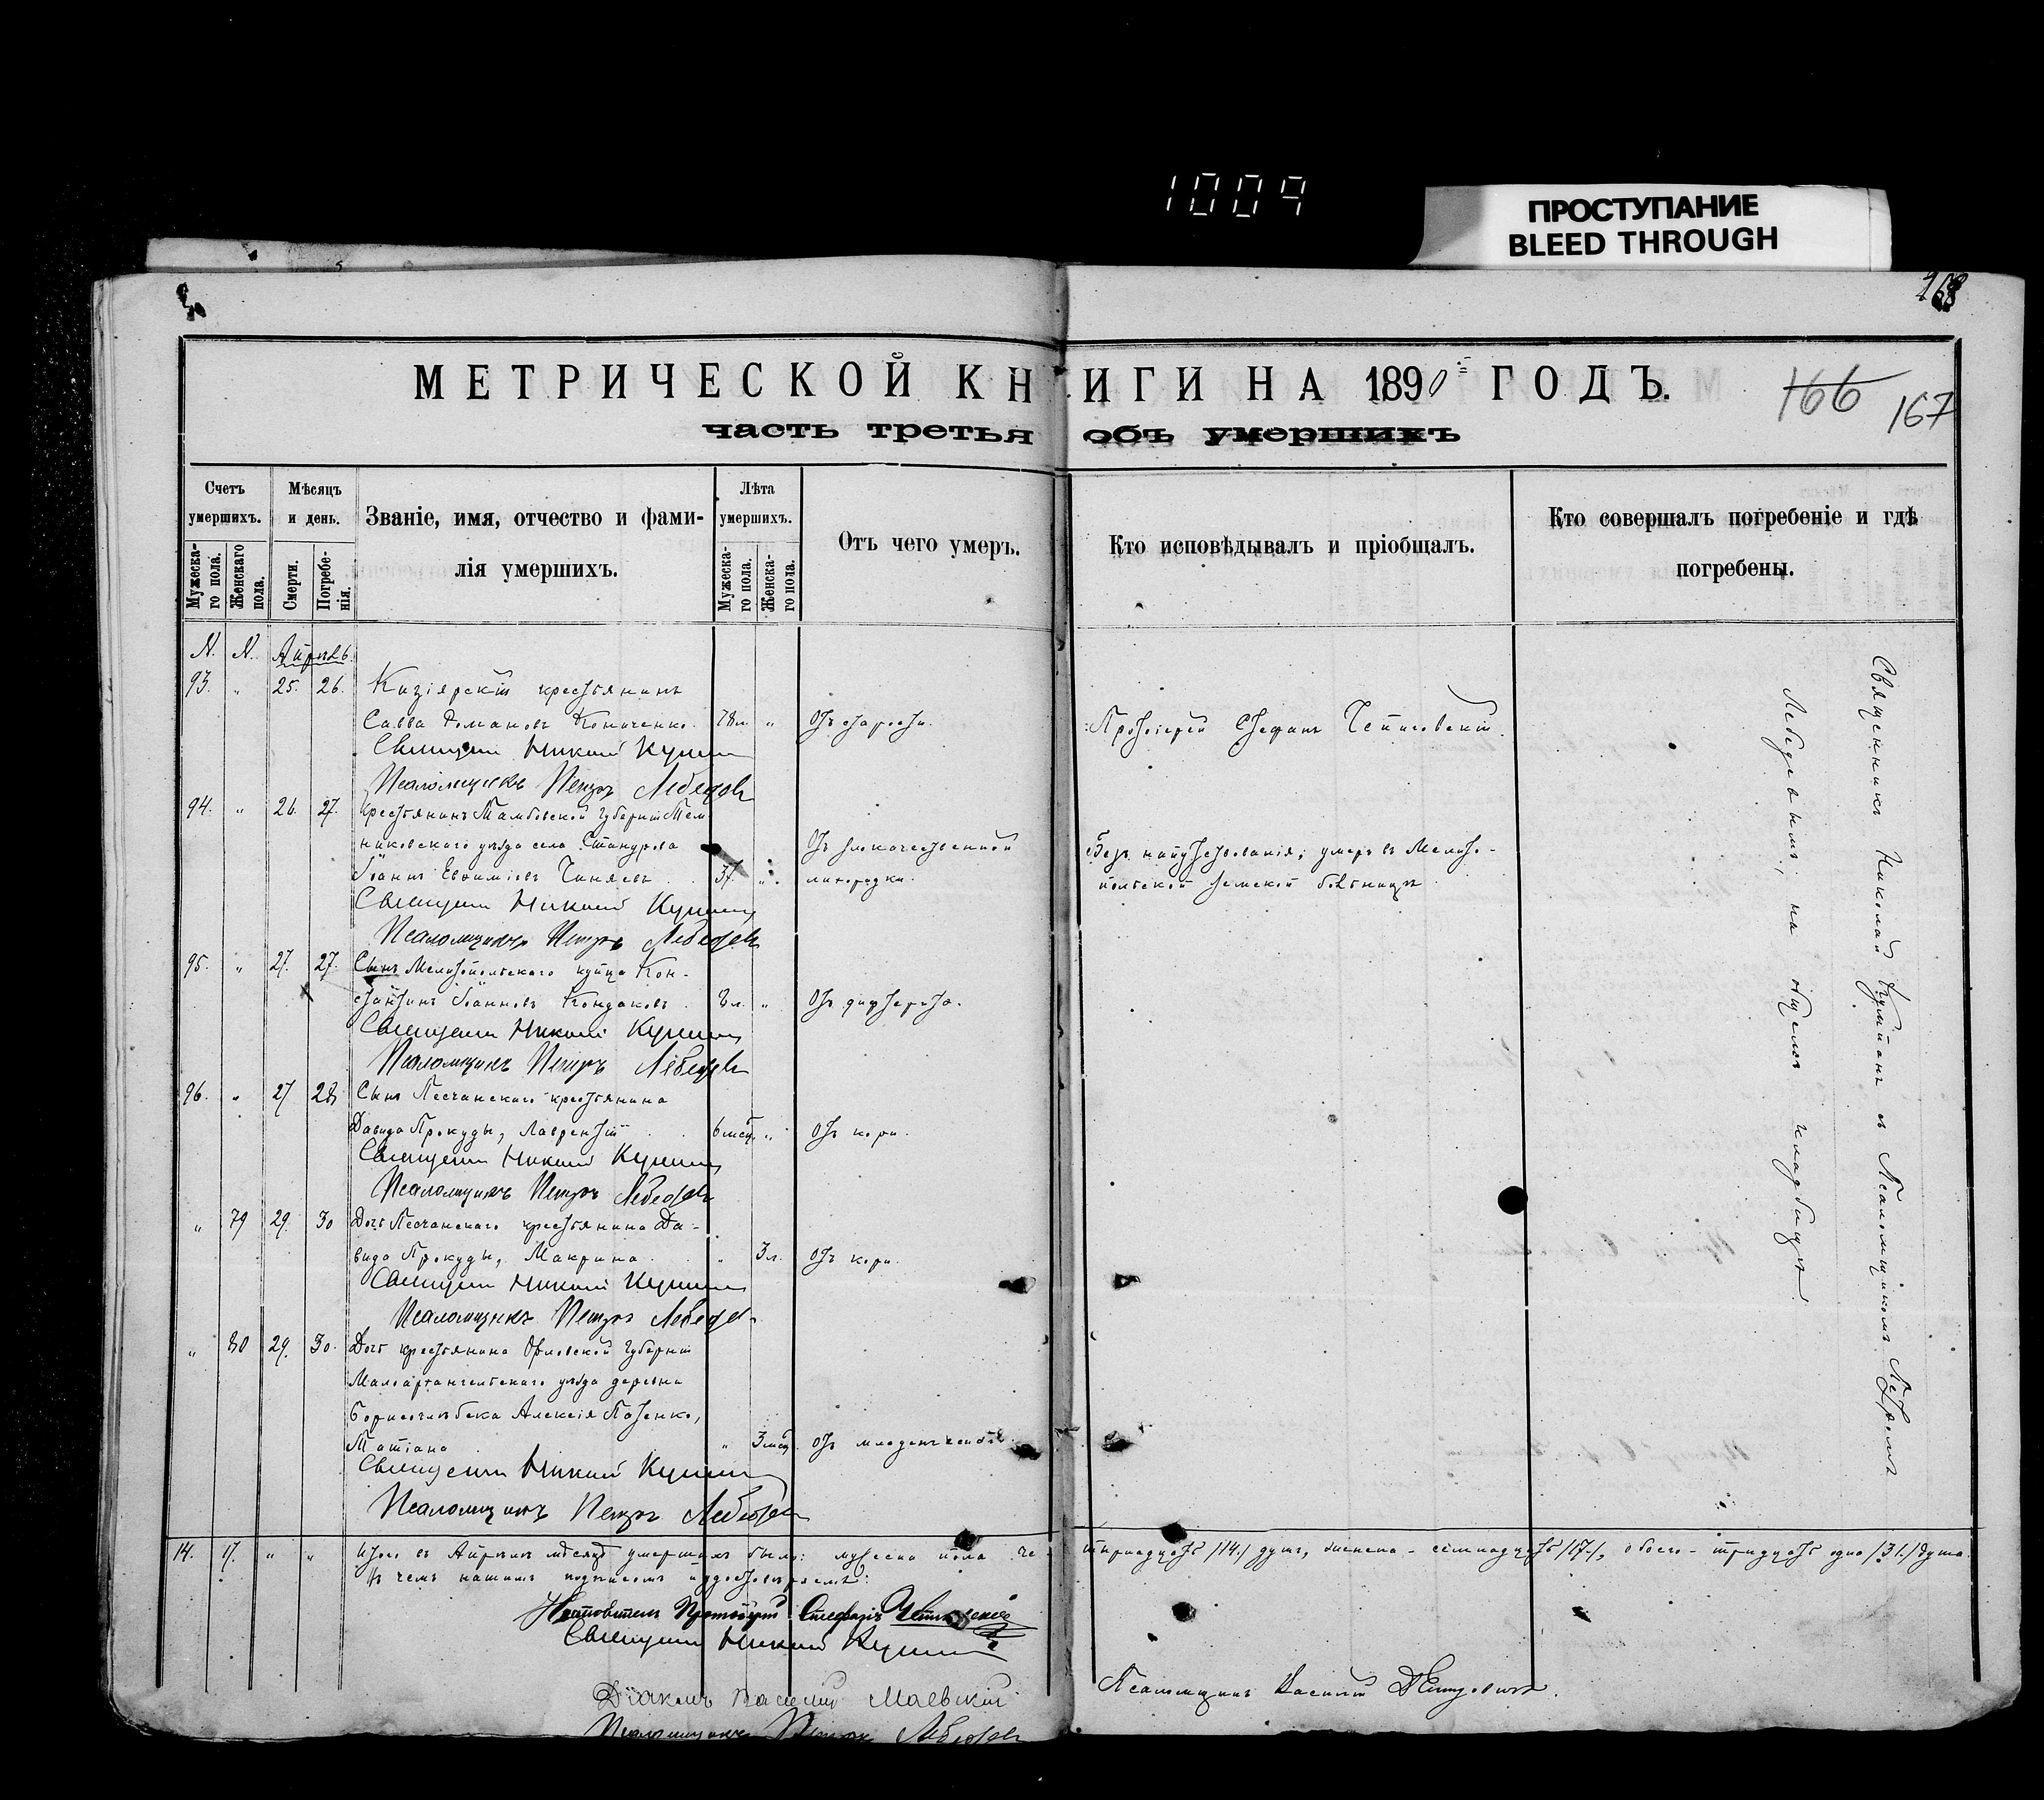 1009
ПРОСТУПАНИЕ
BLEED THROUGH
МЕТРИЧЕСКОЙ КНИГИ НА 1890 ГОДЪ.
166 167
часть третья объ умершихъ
Счетъ умершихъ.
Мужеска-го пола.
Женскаго пола.
Мѣсяцъ и день.
Смерти.
Погребе-нія.
Званіе, имя, отчество и фами-
лія умершихъ.
Лѣта умершихъ.
Мужеска-го пола.
Женска-го пола.
Отъ чего умеръ.
Кто исповѣдывалъ и пріобщалъ.
Кто совершалъ погребеніе и гдѣ
погребены.
N. N. Апрѣль.
93. " 25. 26. крестьянинъ
Савва Романовъ Кониченко. 78 л. " Отъ старости. Протоіерей Стефанъ
Священникъ Николай
Псаломщикъ Петръ Лебедевъ
94. " 26. 27. Крестьянинъ Тамбовской губерніи Тем-
никовскаго уѣзда села Стандрова Отъ злокачественной Безъ напутствованія; умеръ въ Мелито-
Іоаннъ Евѳиміевъ Чиняевъ 37. " лихорадки. польской земской больницѣ.
Священникъ Николай
Псаломщикъ Петръ Лебедевъ
95. " 27. 27. Сынъ Мелитопольскаго купца Кон-
стантинъ Іоанновъ Кондаковъ. 8 л. " Отъ дифтерита.
Священникъ Николай
Псаломщикъ Петръ Лебедевъ
96. " 27 28 Сынъ Песчанскаго крестьянина
Давида Прокуды, Лаврентій 6 мсц. " Отъ кори.
Священникъ Николай
Псаломщикъ Петръ Лебедевъ
" 79 29. 30 Дочь Песчанскаго крестьянина Да-
вида Прокуды, Макрина " 3 л. Отъ кори.
Священникъ Николай
Псаломщикъ Петръ Лебедевъ
" 80 29. 30. Дочь крестьянина Орловской губерніи
Малоархангельскаго уѣзда деревни
Алексія
Татіана " 3 мсц. Отъ
Священникъ Николай
Псаломщикъ Петръ Лебедевъ
Священникъ Николай съ Псаломщикомъ Петромъ
Лебедевымъ, на общемъ кладбищѣ.
14. 17. " " Итого въ Апрѣлѣ мѣсяцѣ умершихъ было: мужеска пола че-тырнадцать /14./ душъ, женска - семнадцать /17./, обоего - тридцать одна /31./ душа.
Въ чемъ нашимъ подписомъ удостовѣряемъ:
Настоятель Протоіерей Стефанъ
Священникъ Николай
Діаконъ Василій Маевскій
Псаломщикъ Василій
Псаломщикъ Петръ Лебедевъ